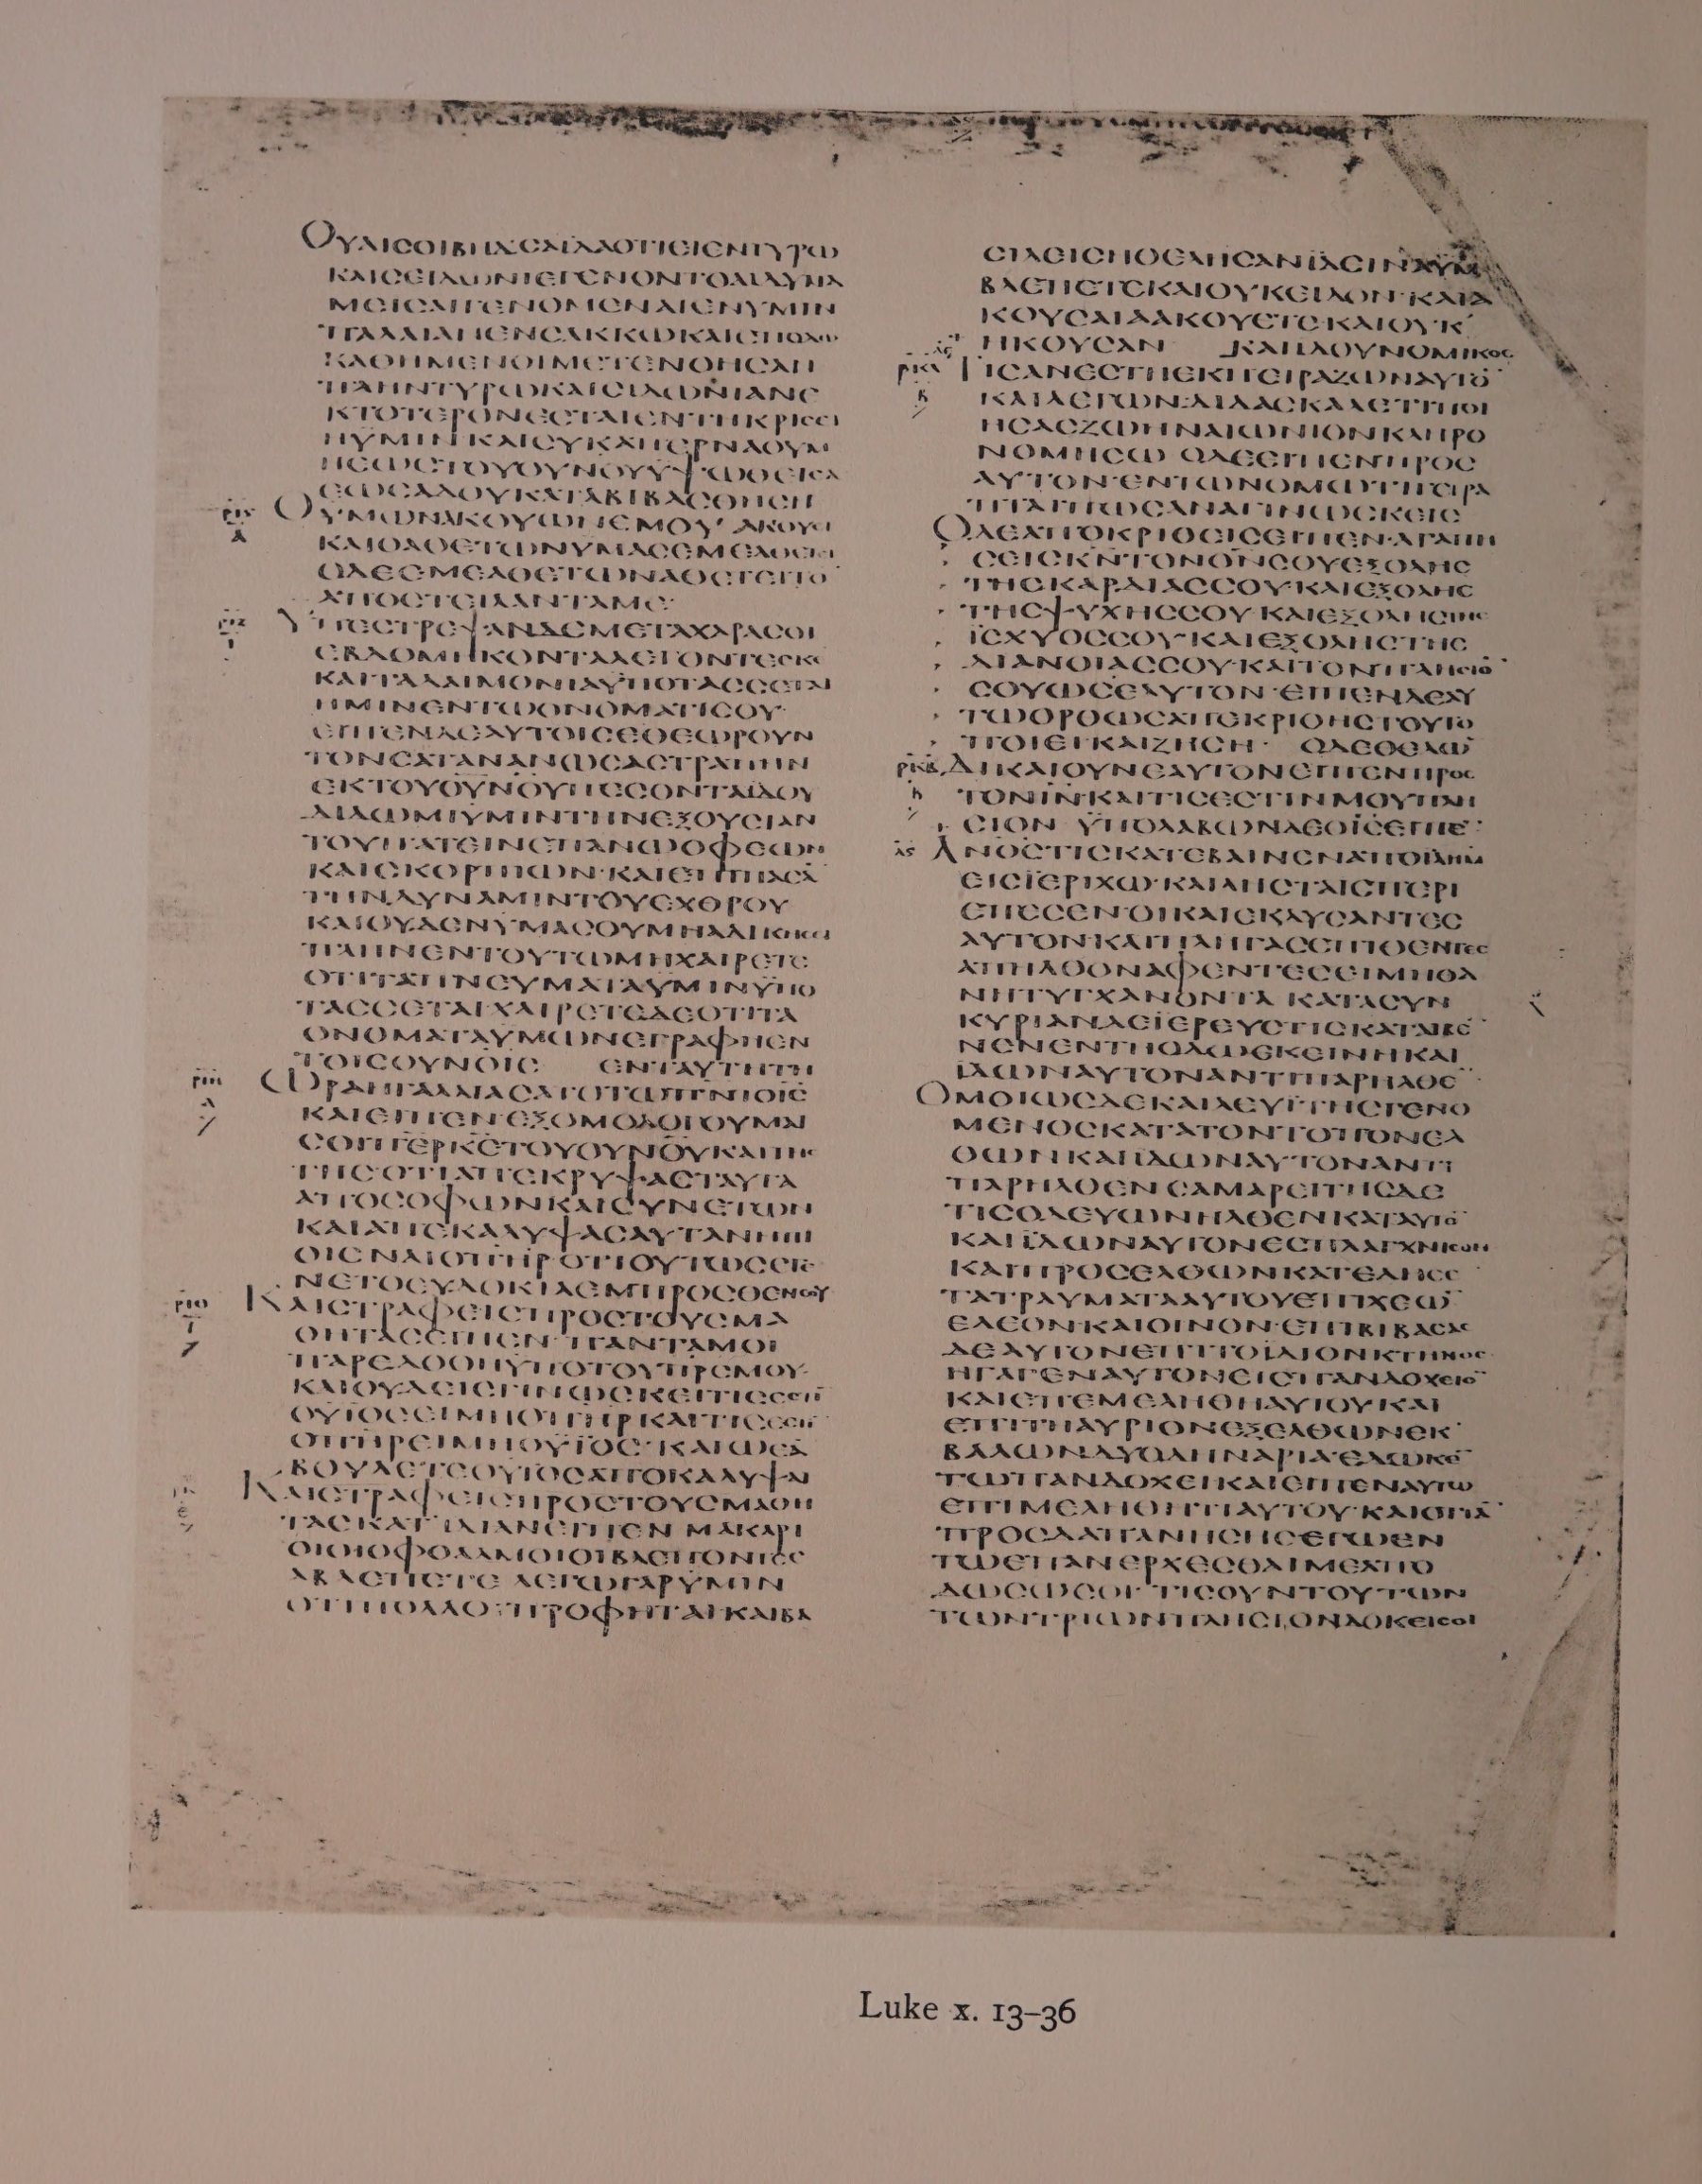 ΟΥΑΙϹΟΙΒΗΔϹΑΪΔΑΟΤΙΕΙΕΝΤΥΡΩ
ΚΑΙϹΕΙΔΩΝΙΕΓΕΝΟΝΤΟΑΙΔΥΝΑ
ΜΕΙϹΑΙΓΕΝΟΜΕΝΑΙΕΝΥΜΙΝ
ΠΑΛΑΙΑΝΕΝϹΑΚΚΩΚΑΙϹΠΟΔΩ
ΚΑΘΗΜΕΝΟΙΜΕΤΕΝΟΗϹΑΝ
ΠΛΗΝΤΥΡΩΚΑΙϹΙΔΩΝΙΑΝΕ
ΚΤΟΤΕΡΟΝΕϹΤΑΙΕΝΤΗΚΡΙϹΕΙ
ΗΥΜΙΝ ΚΑΙϹΥΚΑΠΕΡΝΑΟΥΜ
ΗΕΩϹΤΟΥΟΥΝΟΥΥΨΩΘΕΙϹΑ
ΕΩϹΑΔΟΥΚΑΤΑΒΙΒΑϹΘΗϹΗ
ΡΙϚ ΟΥΜΩΝΑΚΟΥΩΝΕΜΟΥ ΑΚΟΥΕΙ
Α ΚΑΙΟΑΘΕΤΩΝΥΜΑϹΕΜΕΑΘΕΤΕΙ
ΟΔΕΕΜΕΑΘΕΤΩΝΑΘΕΤΕΙΤΟ
ΑΠΟϹΤΕΙΛΑΝΤΑΜΕ
ΡΙΖ ΥΠΕϹΤΡΕΨΑΝΔΕΜΕΤΑΧΑΡΑϹΟΙ
Ι ΕΒΔΟΜΗΚΟΝΤΑΛΕΓΟΝΤΕϹΚΕ
ΚΑΙΤΑΔΑΙΜΟΝΙΑΥΠΟΤΑϹϹΕΤΑΙ
ΗΜΙΝΕΝΤΩΟΝΟΜΑΤΙϹΟΥ
ΕΙΠΕΝΔΕΑΥΤΟΙϹΕΘΕΩΡΟΥΝ
ΤΟΝϹΑΤΑΝΑΝΩϹΑϹΤΡΑΠΗΝ
ΕΚΤΟΥΟΥΝΟΥΠΕϹΟΝΤΑΙΔΟΥ
ΔΙΔΩΜΙΥΜΙΝΤΗΝΕΞΟΥϹΙΑΝ
ΤΟΥΠΑΤΕΙΝΕΠΑΝΩΟΦΕΩΝ
ΚΑΙϹΚΟΡΠΙΩΝΚΑΙΕΠΙΠΑϹΑ
ΤΗΝΔΥΝΑΜΙΝΤΟΥΕΧΘΡΟΥ
ΚΑΙΟΥΔΕΝΥΜΑϹΟΥΜΗΑΔΙΚΗϹΕΙ
ΠΛΗΝΕΝΤΟΥΤΩΜΗΧΑΙΡΕΤΕ
ΟΤΙΤΑΠΝΕΥΜΑΤΑΥΜΙΝΥΠΟ
ΤΑϹϹΕΤΑΙΧΑΙΡΕΤΕΔΕΟΤΙΤΑ
ΟΝΟΜΑΤΑΥΜΩΝΕΓΡΑΦΗΕΝ
ΤΟΙϹΟΥΝΟΙϹ ΕΝΤΑΥΤΗΤΗ
ΡΙΗ ΩΡΑΗΓΑΛΛΙΑϹΑΤΟΤΩΠΝΙΟΙϹ
ΚΑΙΕΙΠΕΝ ΕΞΟΜΟΛΟΓΟΥΜΑΙ
ϹΟΙΠΕΡΚΕΤΟΥΟΥΝΟΥΚΑΙΤΗϹ
ΓΗϹΟΤΙΑΠΕΚΡΥΨΑϹΤΑΥΤΑ
ΑΠΟϹΟΦΩΝΚΑΙϹΥΝΕΤΩΝ
ΚΑΙΑΠΕΚΑΛΥΨΑϹΑΥΤΑΝΗΠΙ
ΟΙϹΝΑΙΟΠΗΡΟΤΙΟΥΤΩϹΕΓΕ
ΝΕΤΟΕΥΔΟΚΙΑΕΜΠΡΟϹΘΕΝϹΟΥ
ΡΙΘ ΚΑΙϹΤΡΑΦΕΙϹΠΡΟϹΤΟΥϹΜΑ
ΘΗΤΑϹΕΙΠΕΝ ΠΑΝΤΑΜΟΙ
ΠΑΡΕΔΟΘΗΥΠΟΤΟΥΠΡϹΜΟΥ
ΚΑΙΟΥΔΕΙϹΓΙΝΩϹΚΕΙΤΙϹΕϹΤΙ
ΟΥΙΟϹΕΙΜΗΟΠΗΡΚΑΙΤΙϹΕϹΤΙ
ΟΠΗΡΕΙΜΗΟΥΪΟϹ ΚΑΙΩΕΑ
ΒΟΥΛΕΤΕΟΥΙΟϹΑΠΟΚΑΛΥΨΑΙ
ΚΑΙϹΤΡΑΦΕΙϹΠΡΟϹΤΟΥϹΜΑΘΗ
ΤΑϹΚΑΤΙΔΙΑΝΕΙΠΕΝ ΜΑΚΑΡΙ
ΟΙΟΙΟΦΘΑΛΜΟΙΟΙΒΛΕΠΟΝΤΕϹ
ΑΒΛΕΠΕΤΕ ΛΕΓΩΓΑΡΥΜΙΝ
ΟΤΙΠΟΛΛΟΙΠΡΟΦΗΤΑΙΚΑΙΒΑ
ϹΙΛΕΙϹΗΘΕΛΗϹΑΝΪΔΕΙΝΑΥΜ
ΒΛΕΠΕΤΕΚΑΙΟΥΚΕΙΔΟΝ ΚΑΙΑ
ΚΟΥϹΑΙΑΑΚΟΥΕΤΕΚΑΙΟΥΚ
ΗΚΟΥϹΑΝ ΚΑΙΙΔΟΥΝΟΜΙΚΟϹ
ΡΚΑ ΤΙϹΑΝΕϹΤΗΕΚΠΕΙΡΑΖΩΝΑΥΤΟ
Β ΚΑΙΛΕΓΩΝ ΔΙΔΑϹΚΑΛΕΤΙΠΟΙ
ΗϹΑϹΖΩΗΝΑΙΩΝΙΟΝΚΛΗΡΟ
ΝΟΜΗϹΩ ΟΔΕΕΙΠΕΝΠΡΟϹ
ΑΥΤΟΝ ΕΝΤΩΝΟΜΩΤΙΓΕΓΡΑ
ΠΤΑΙΠΩϹΑΝΑΓΙΝΩϹΚΕΙϹ
ΟΔΕΑΠΟΚΡΙΘΕΙϹΕΙΠΕΝ ΑΓΑΠΗ
ϹΕΙϹΚΝΤΟΝΘΝϹΟΥΕΞΟΛΗϹ
ΤΗϹΚΑΡΔΙΑϹϹΟΥ ΚΑΙΕΞΟΛΗϹ
ΤΗϹΨΥΧΗϹϹΟΥ ΚΑΙΕΞΟΛΗϹΤΗϹ
ΙϹΧΥΟϹϹΟΥ ΚΑΙΕΞΟΛΗϹΤΗϹ
ΔΙΑΝΟΙΑϹϹΟΥ ΚΑΙΤΟΝΠΛΗϹΙΟ
ϹΟΥΩϹϹΕΑΥΤΟΝ ΕΙΠΕΝΔΕΑΥ
ΤΩΟΡΘΩϹΑΠΕΚΡΙΘΗϹΤΟΥΤΟ
ΠΟΙΕΙΚΑΙΖΗϹΗ ΟΔΕΘΕΛΩ
ΡΚΒ ΔΙΚΑΙΟΥΝΕΑΥΤΟΝΕΙΠΕΝΠΡΟϹ
ΤΟΝΙΝ ΚΑΙΤΙϹΕϹΤΙΝΜΟΥΠΛΗ
ϹΙΟΝ ΥΠΟΛΑΒΩΝΔΕΟΙϹΕΙΠΕ
ΛϚ ΑΝΟϹΤΙϹΚΑΤΕΒΑΙΝΕΝΑΠΟΙΛΗΜ
ΕΙϹΪΕΡΙΧΩ ΚΑΙΛΗϹΤΑΙϹΠΕΡΙ
ΕΠΕϹΕΝ ΟΙΚΑΙΕΚΔΥϹΑΝΤΕϹ
ΑΥΤΟΝ ΚΑΙΠΛΗΓΑϹΕΠΙΘΕΝΤΕϹ
ΑΠΗΛΘΟΝΑΦΕΝΤΕϹΕΙΜΙΘΑ
ΝΗΤΥΓΧΑΝΟΝΤΑ ΚΑΤΑϹΥΝ
ΚΥΡΙΑΝΔΕΪΕΡΕΥϹΤΙϹΚΑΤΑΒΕ
ΝΕΝΕΝΤΗΟΔΩΕΚΕΙΝΗΚΑΙ
ΙΔΩΝΑΥΤΟΝΑΝΤΙΠΑΡΗΛΘΕ
ΟΜΟΙΩϹΔΕΚΑΙΛΕΥΙΤΗϹΓΕΝΟ
ΜΕΝΟϹΚΑΤΑΤΟΝΤΟΠΟΝΕΛ
ΘΩΝΚΑΙΙΔΩΝΑΥΤΟΝΑΝΤΙ
ΠΑΡΗΛΘΕΝ ϹΑΜΑΡΕΙΤΗϹΔΕ
ΤΙϹΟΔΕΥΩΝΗΛΘΕΝΚΑΤΑΥΤΟ
ΚΑΙΪΔΩΝΑΥΤΟΝΕϹΠΛΑΓΧΝΙϹΘΗ
ΚΑΙΠΡΟϹΕΛΘΩΝΚΑΤΕΔΗϹΕ
ΤΑΤΡΑΥΜΑΤΑΑΥΤΟΥΕΠΙΧΕΩ
ΕΛΕΟΝΚΑΙΟΙΝΟΝ ΕΠΙΒΙΒΑϹΑϹ
ΔΕΑΥΤΟΝΕΠΙΤΟΙΔΙΟΝΚΤΗΝΟϹ
ΗΓΑΓΕΝΑΥΤΟΝΕΙϹΠΑΝΔΟΧΕΙΟ
ΚΑΙΕΠΕΜΕΛΗΘΗΑΥΤΟΥ ΚΑΙ
ΕΠΙΤΗΑΥΡΙΟΝΕΞΕΛΘΩΝΕΚ
ΒΑΛΩΝΔΥΟΔΗΝΑΡΙΑΕΔΩΚΕ
ΤΩΠΑΝΔΟΧΕΙΚΑΙΕΙΠΕΝΑΥΤΩ
ΕΠΙΜΕΛΗΘΗΤΙΑΥΤΟΥ ΚΑΙΟΤΙΑ
ΠΡΟϹΔΑΠΑΝΗϹΗϹΕΓΩΕΝ
ΤΩΕΠΑΝΕΡΧΕϹΘΑΙΜΕΑΠΟ
ΔΩϹΩϹΟΙ ΤΙϹΟΥΝΤΟΥΤΩΝ
ΤΩΝΤΡΙΩΝΠΛΗϹΙΟΝΔΟΚΕΙϹΟΙ
Luke x. 13–36